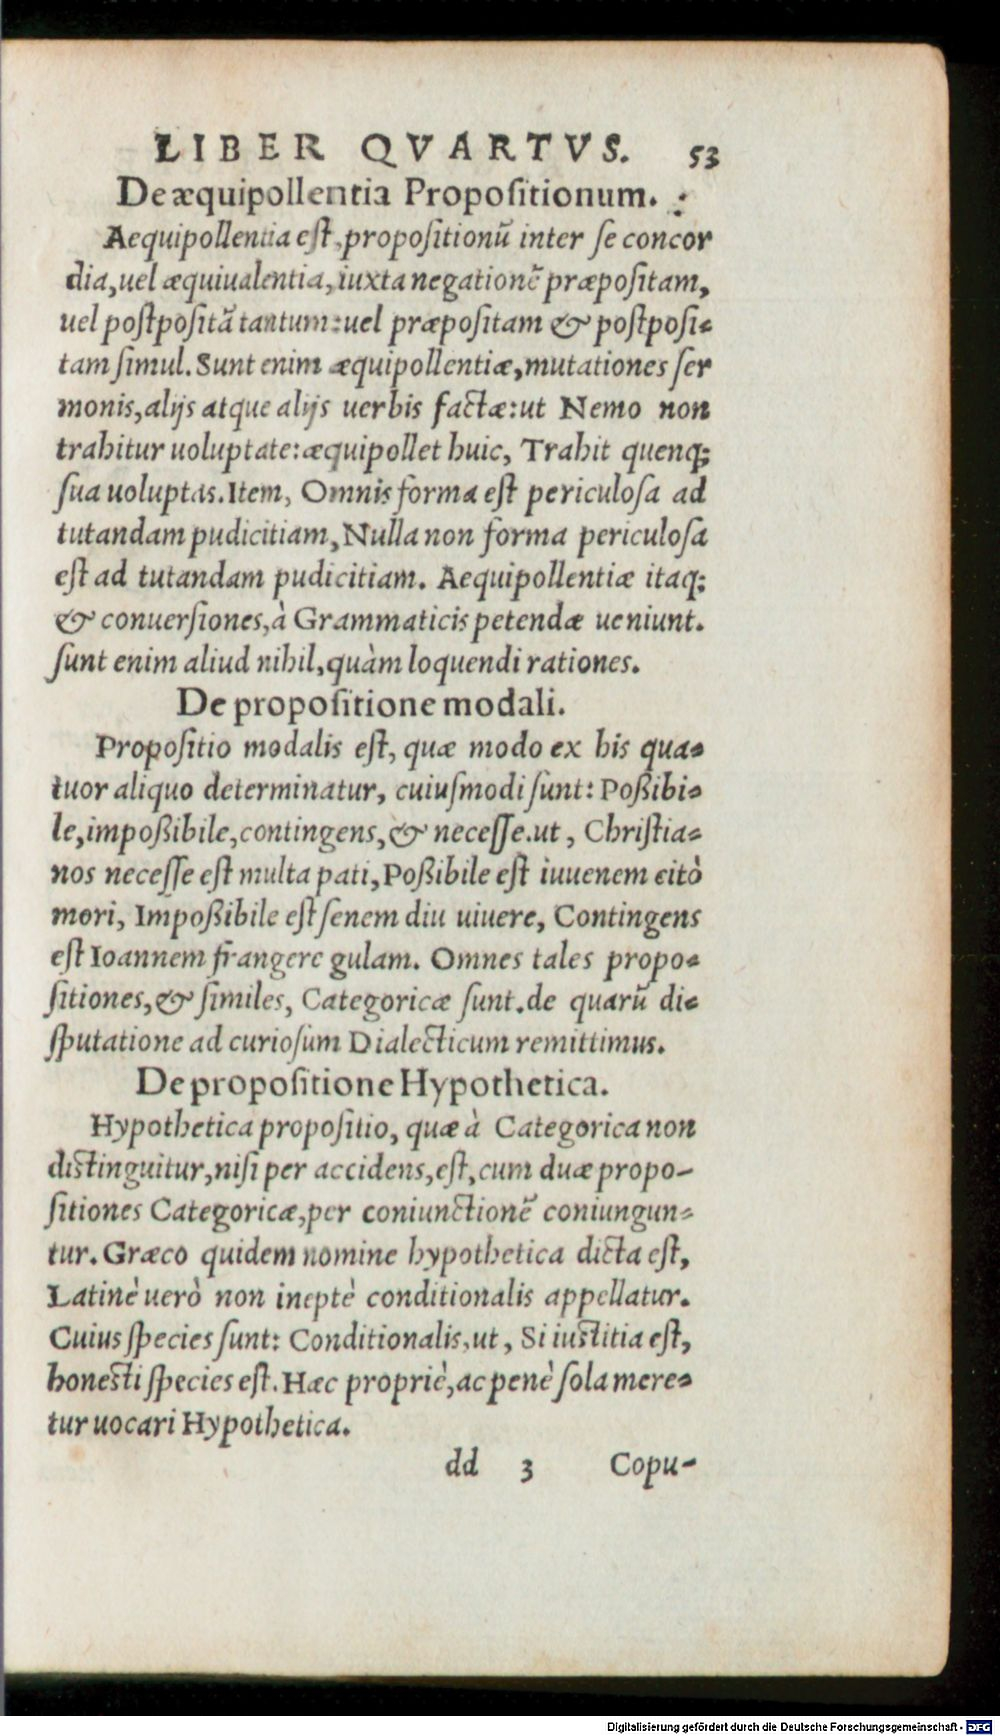 LIBER QVARTVS. 53
De æquipollentia Propositionum.
Aequipollentia est, propositionū inter se concor
dia, uel æquiualentia, iuxta negationē præpositam,
uel postpositā tantum: uel præpositam & postposi-
tam simul. Sunt enim æquipollentiæ, mutationes ser
monis, alijs atque alijs uerbis factæ: ut Nemo non
trahitur uoluptate: æquipollet huic, Trahit quenq;
sua uoluptas. Item, Omnis forma est periculosa ad
tutandam pudicitiam, Nulla non forma periculosa
est ad tutandam pudicitiam. Aequipollentiæ itaq;
& conuersiones, à Grammaticis petendæ ueniunt.
sunt enim aliud nihil, quàm loquendi rationes.
De propositione modali.
Propositio modalis est, quæ modo ex his qua-
tuor aliquo determinatur, cuiusmodi sunt: Poßibi-
le, impoßibile, contingens, & necesse. ut, Christia-
nos necesse est multa pati, Poßibile est iuuenem citò
mori, Impoßibile est senem diu uiuere, Contingens
est Ioannem frangere gulam. Omnes tales propo-
sitiones, & similes, Categoricæ sunt. de quarū di-
sputatione ad curiosum Dialecticum remittimus.
De propositione Hypothetica.
Hypothetica propositio, quæ à Categorica non
distinguitur, nisi per accidens, est, cum duæ propo-
sitiones Categoricæ, per coniunctionē coniungun-
tur. Græco quidem nomine hypothetica dicta est,
Latinè uerò non ineptè conditionalis appellatur.
Cuius species sunt: Conditionalis, ut, Si iustitia est,
honesti species est. Hæc propriè, ac penè sola mere-
tur uocari Hypothetica.
dd 3 Copu-
Digitalisierung gefördert durch die Deutsche Forschungsgemeinschaft - DFG